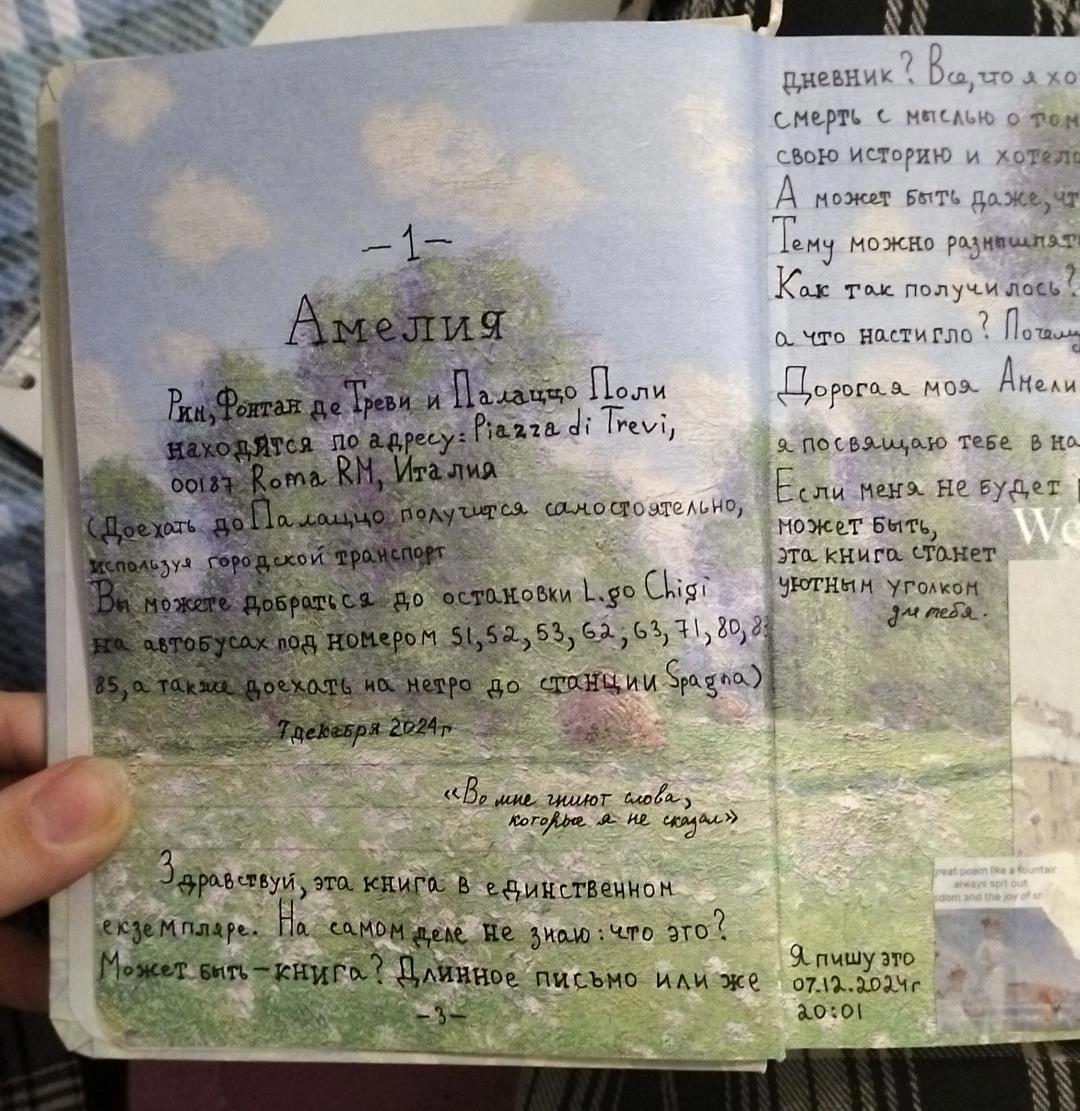 -1-
Амелия
Рим, Фонтан де Треви и Палаццо Поли
находятся по адресу: Piazza di Trevi,
00187 Roma RM, Италия
(Доехать до Палаццо получится самостоятельно,
используя городской транспорт
Вы можете добраться до остановки L.go Chigi
на автобусах под номером 51, 52, 53, 62, 63, 71, 80,
85, а также доехать на метро до станции Spagna)
7 декабря 2024г
«Во мне гниют слова,
которые я не сказал»
Здравствуй, эта книга в единственном
екземпляре. На самом деле не знаю: что это?
Может быть - книга? Длинное письмо или же
-3-
дневник? Все, что я хо
смерть с мыслью о том
свою историю и хотело
А может быть даже, чт
Тему можно размышлят
Как так получилось?
а что настигло? Почему
Дорогая моя Амели
я посвящаю тебе в на
Если меня не будет
может быть,
эта книга станет
уютным уголком
для тебя.
We
great poem like a fountain
always spit out
sdom and the joy of
Я пишу это
07.12.2024г
20:01